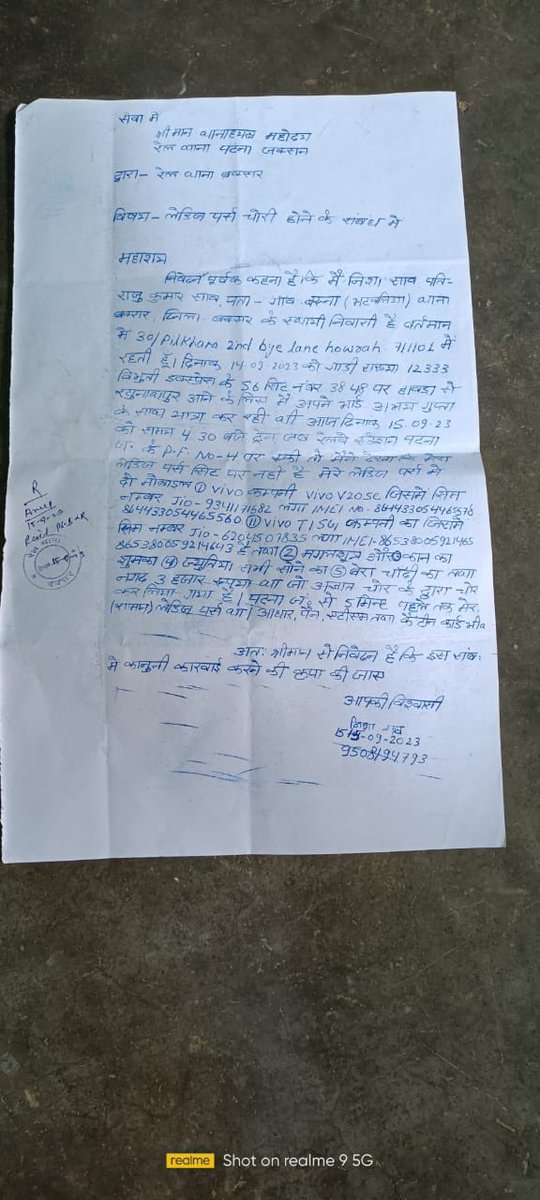 सेवा में
श्रीमान थानाध्यक्ष महोदय
रेल थाना पटना जंक्सन
द्वारा- रेल थाना बक्सर
विषय- लेडिज पर्स चोरी होने के संबंध में
महाशय
निवेदन पूर्वक कहना है कि मैं निशा साव पति-
कुमार साव, पता- गांव थाना
बक्सर जिला- बक्सर के स्थायी निवासी हूँ वर्तमान
में 30/Pilkhana 2nd bye lane howrah 711101 में
रहती हूँ। दिनांक 14-09-2023 को गाड़ी संख्या 12333
विभूती इक्सप्रेस के S6 सिट नंबर 38 48 पर हावड़ा से
रघुनाथपुर आने के लिए मैं अपने भाई गुप्ता
के साथ यात्रा कर रही थी आज दिनांक 15.09.23
को समय 4 30 बजे ट्रेन जब रेलवे स्टेशन पटना
ज. के P.F. No-4 पर रूकी तो मैंने देखा कि मेरा
लेडिज पर्स सिट पर नहीं है मेरे लेडिज पर्स में
दो मोबाइल ① vivo कम्पनी vivo V20SE जिसमें सिम
नम्बर Jio- लगा IMEI NO-
864433054465560 ⑪ vivo T1 5G कम्पनी का जिसमें
सिम नम्बर Jio-6204507835 लगा IMEI-
865380059214643 है तथा ② मंगलसूत्र और ③ कान का
झुमका ④ सभी सोने का ⑤ चाँदी का तथा
नगद 3 हजार रूपया था जो अज्ञात चोर के द्वारा चोर
कर लिया गया है। पटना ज. से 5 मिनट पहले तक मेरा
लेडिज पर्स था। आधार, पैन, एटीएम तथा कार्ड भी था
अतः श्रीमान से निवेदन है कि इस संबंध
में कानूनी कारवाई करने की कृपा की जाए
आपकी विश्वासी
निशा साव
15-09-2023
9508194793
R
बक्सर
realme Shot on realme 9 5G